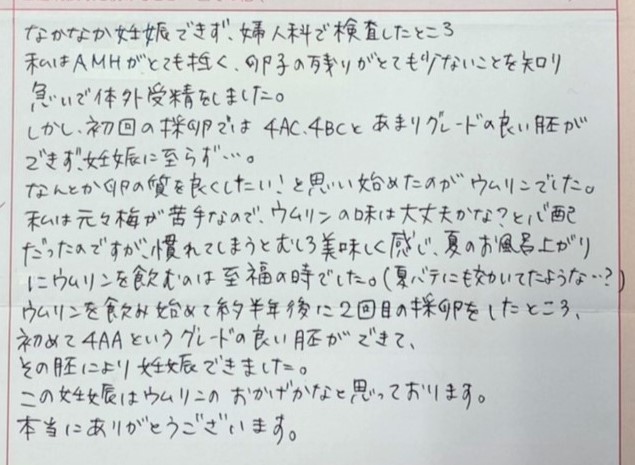 なかなか妊娠できず、婦人科で検査したところ
私はAMHがとても低く、卵子の残りがとても少ないことを知り
急いで体外受精をしました。
しかし、初回の採卵では 4AC、4BCと あまりグレードの良い胚が
できず、妊娠に至らず…。
なんとか卵の質を良くしたい！と思い始めたのが ウムリンでした。
私は元々梅が苦手なので、ウムリンの味は大丈夫かな？と心配
だったのですが、慣れてしまうとむしろ美味しく感じ、夏のお風呂上がり
にウムリンを飲むのは至福の時でした。(夏バテにも効いてたような…？)
ウムリンを飲み始めて約半年後に2回目の採卵をしたところ、
初めて4AAというグレードの良い胚ができて、
その胚により妊娠できました。
この妊娠はウムリンの おかげかなと思っております。
本当にありがとうございます。